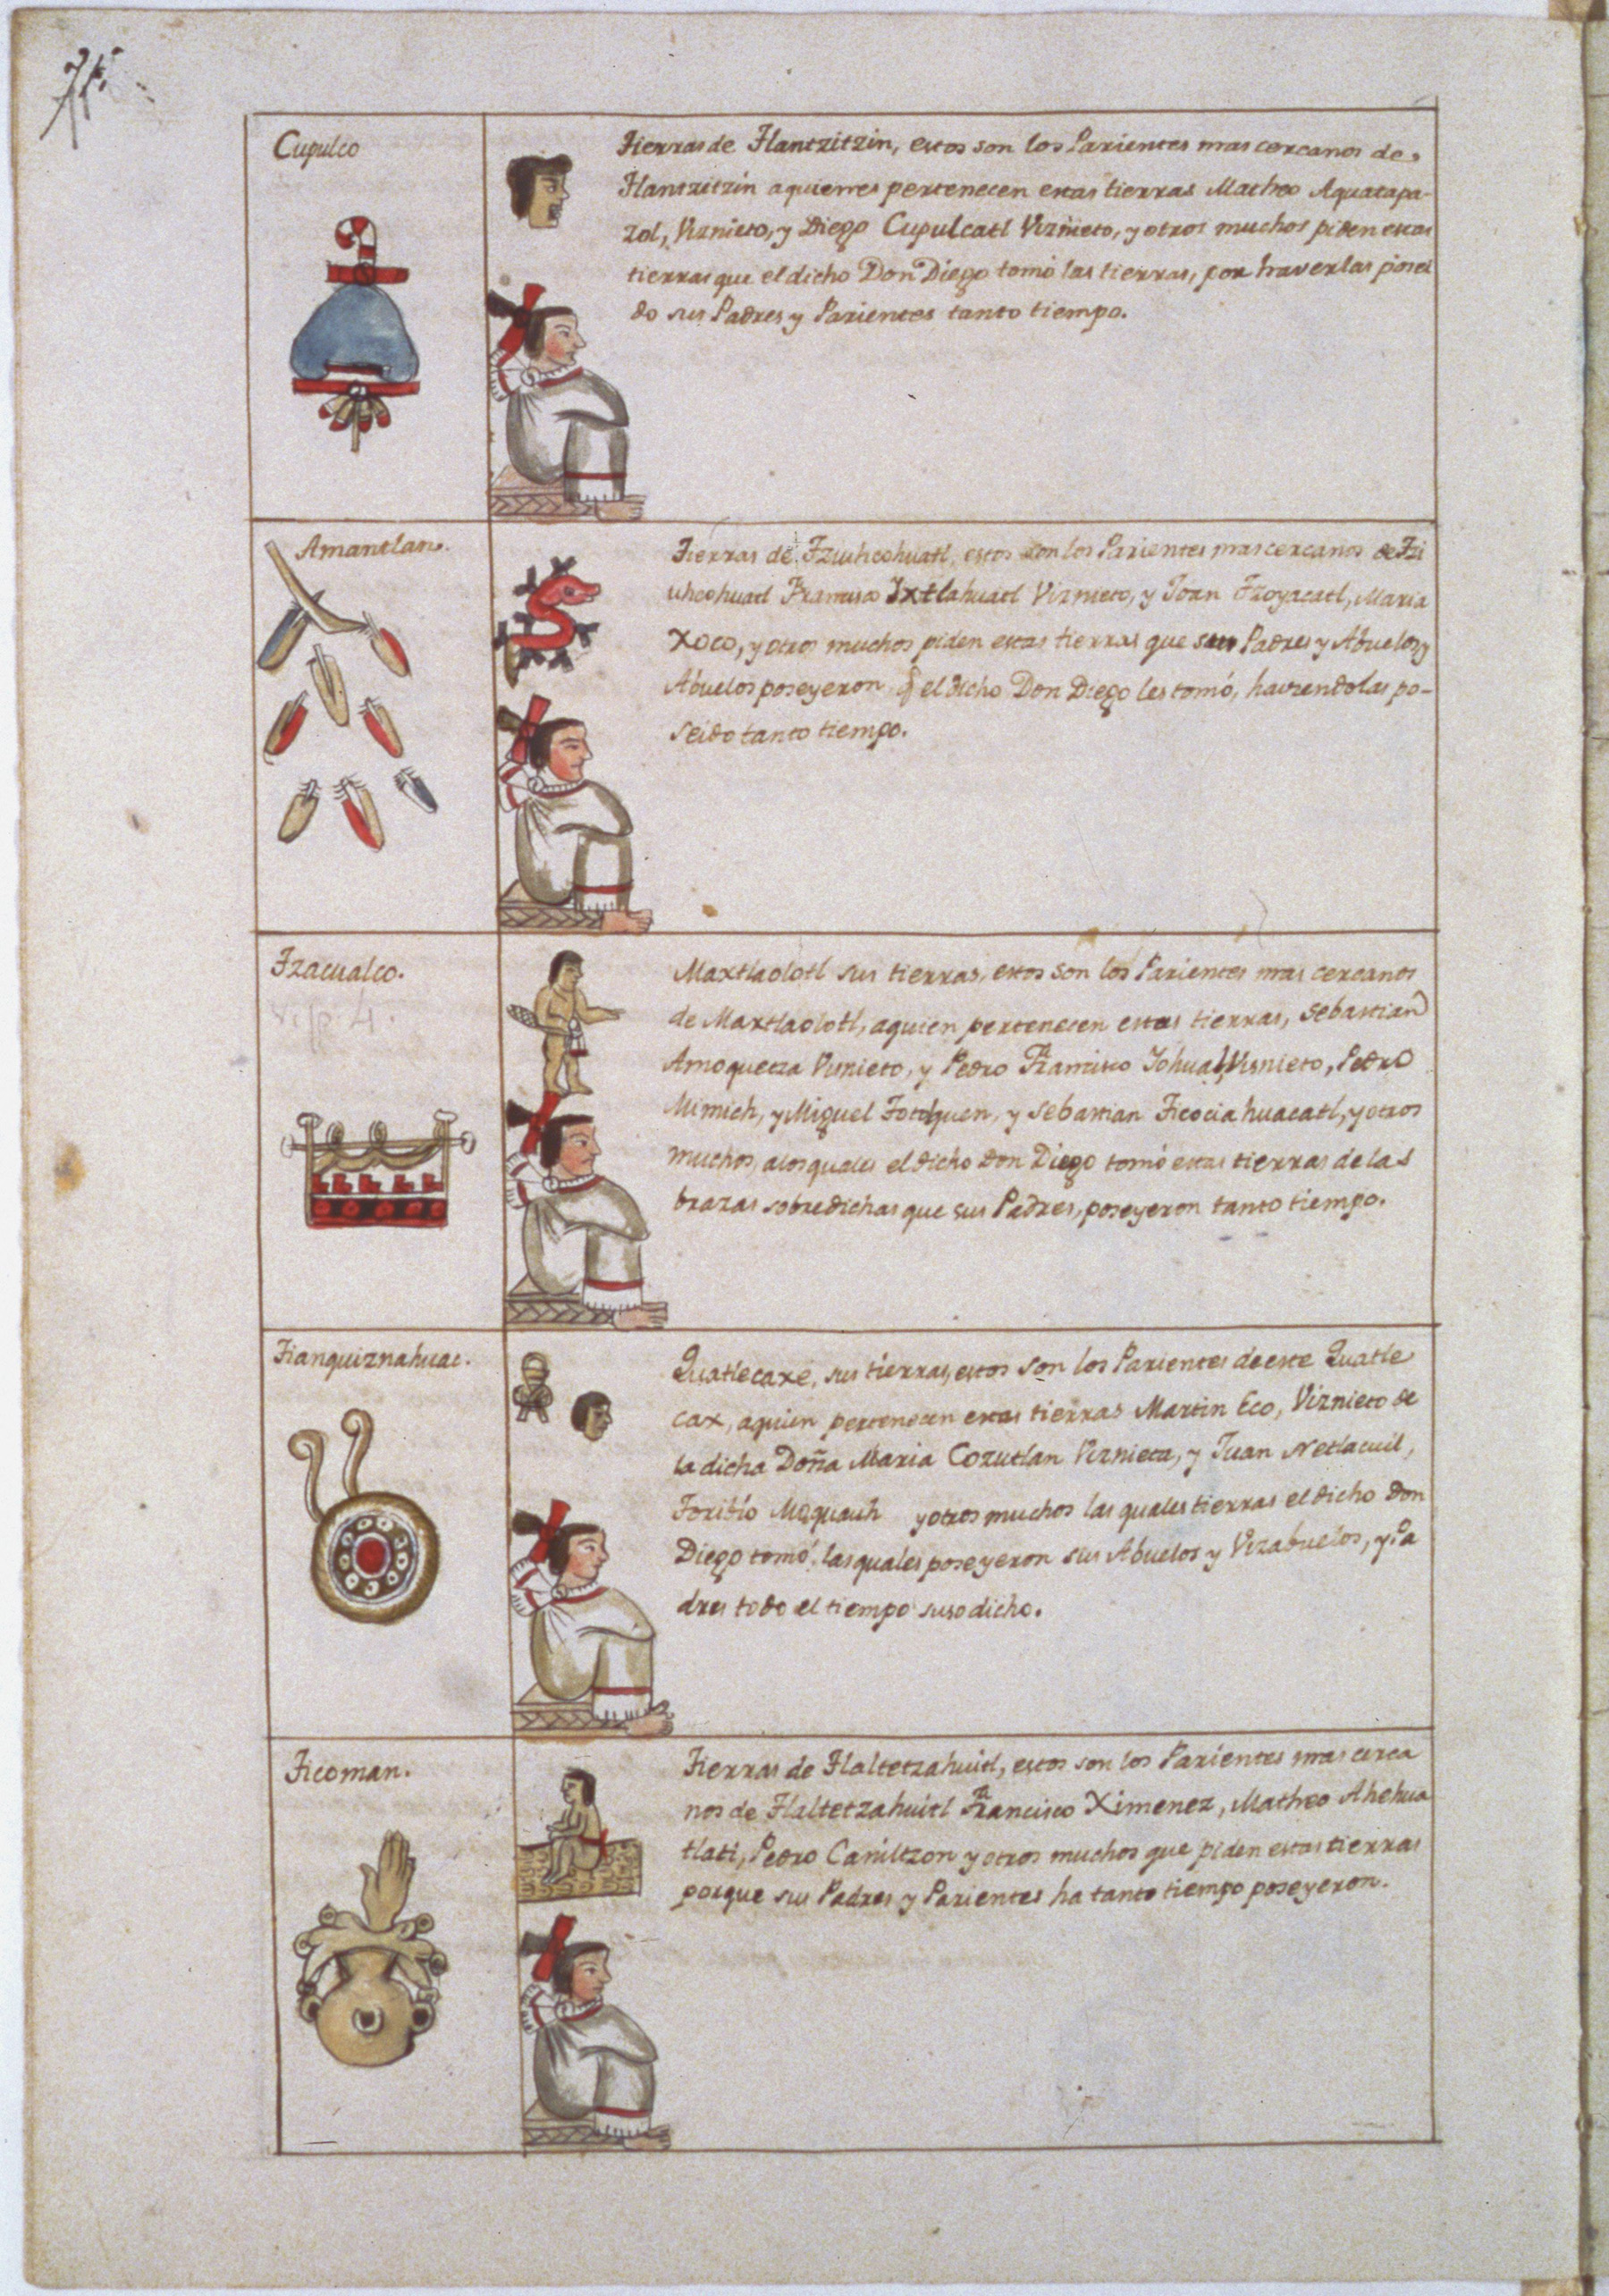 Cupulco
Tierras de Tlantzitzin, estos son los Parientes mas cercanos de
Tlantzitzin aquienes pertenecen estas tierras Matheo Aquatapa-
zol, Viznieto, y Diego Cupulcatl Viznieto, y otros muchos piden estas
tierras que el dicho Don Diego tomó las tierras, por haverlas posei
do sus Padres y Parientes tanto tiempo.
Amantlan.
Tierras de Tziuhcohuatl, estos son los Parientes mas cercanos de Tzi
uhcohuatl Francisco Ixtlahuatl Viznieto, y Joan Tzoyacatl, Maria
Xoco, y otros muchos piden estas tierras que sus Padres y Abuelos y
Abuelos poseyeron q̃ el dicho Don Diego les tomó, haviendolas po-
seido tanto tiempo.
Tzacualco.
Maxtlaolotl sus tierras, estos son los Parientes mas cercanos
de Maxtlaolotl, aquien pertenecen estas tierras, Sebastian
Amoquetza Visnieto, y Pedro Francisco Yohual, Visnieto, Pedro
Mimich, y Miguel Totoquen, y Sebastian Ticociahuacatl, y otros
muchos, alos quales el dicho Don Diego tomó estas tierras de las
brazas sobredichas que sus Padres, poseyeron tanto tiempo.
Tianquiznahuac.
Quatlecaxe, sus tierras, estos son los Parientes de este Quatle
cax, aquien pertenecen estas tierras Martin Eco, Viznieto de
la dicha Doña Maria Cozutlan Viznieta, y Juan Netlacuil,
Toribio Maquauh y otros muchos las quales tierras el dicho Don
Diego tomó, las quales poseyeron sus Abuelos y Vizabuelos, y Pa
dres todo el tiempo suso dicho.
Ticoman.
Tierras de Tlaltetzahuitl, estos son los Parientes mas cerca
nos de Tlaltetzahuitl Francisco Ximenez, Matheo Ahehua
tlati, Pedro Caniltzon y otros muchos que piden estas tierras
porque sus Padres y Parientes ha tanto tiempo poseyeron.